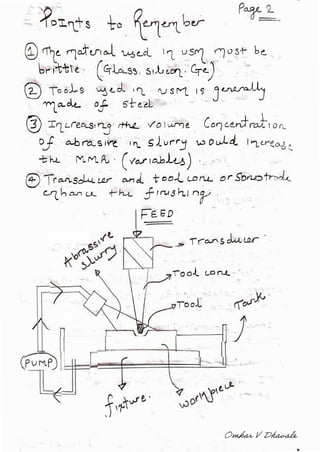 Page 2
Points to Remember
① The material used in USM must be
brittle (Glass. Silicon. Ge)
② Tools used in USM is generally
made of steel
③ Increasing the volume Concentration
of abrasive in slurry would Increase
the M.M.R. (variables)
④ Transducer and tool cone or Sonotrode
enhance the finishing
FEED
Abrassive
slurry
Transducer
Tool cone
Tool
Tank
PUMP
fixture.
workpiece.
Omkar V Dhavale